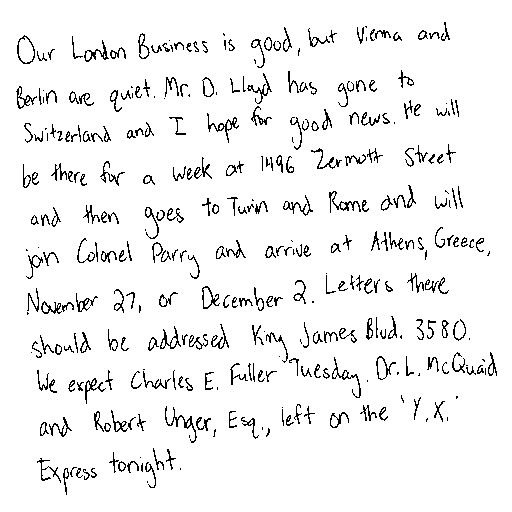 Our London Business is good, but Vienna and
Berlin are quiet. Mr. D. Lloyd has gone to
Switzerland and I hope for good news. He will
be there for a week at 1496 Zermott Street
and then goes to Turin and Rome and will
join Colonel Parry and arrive at Athens, Greece,
November 27, or December 2. Letters there
should be addressed King James Blvd. 3580.
We expect Charles E. Fuller Tuesday. Dr. L. McQuaid
and Robert Unger, Esq., left on the 'Y.X.'
Express tonight.